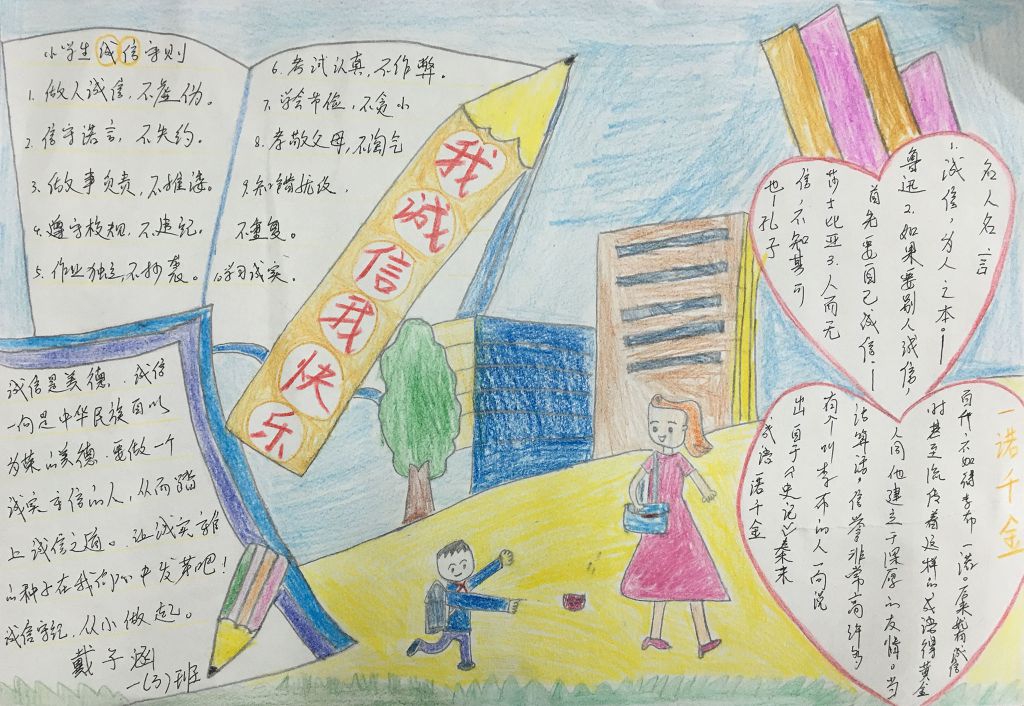 小学生诚信守则
1. 做人诚信，不虚伪。
2. 信守诺言，不失约。
3. 做事负责，不推诿。
4. 遵守校规，不违纪。
5. 作业独立，不抄袭。
6. 考试认真，不作弊。
7. 学会节俭，不贪小
8. 孝敬父母，不淘气
9. 知错就改，
不重复。
10学习诚实.
我诚信我快乐
诚信是美德．诚信
一向是中华民族自以
为荣的美德．要做一个
诚实守信的人，从而踏
上诚信之道。让诚实
的种子在我们心中发芽吧！
诚信守纪，从小做起。
戴子涵
一(3)班
名人名言
1.诚信，为人之本。—
鲁迅2.如果要别人诚信，
首先要自己诚信．—
莎士比亚3.人而无
信，不知其可
也—孔子
一诺千金
百斤，不如得季布一诺。
时甚至流传着这样的成语得黄金
人同他建立了深厚的友情。当
说算话，信誉非常高许多
有个叫季布的人一向说
出自于《史记》秦末
成语一诺千金